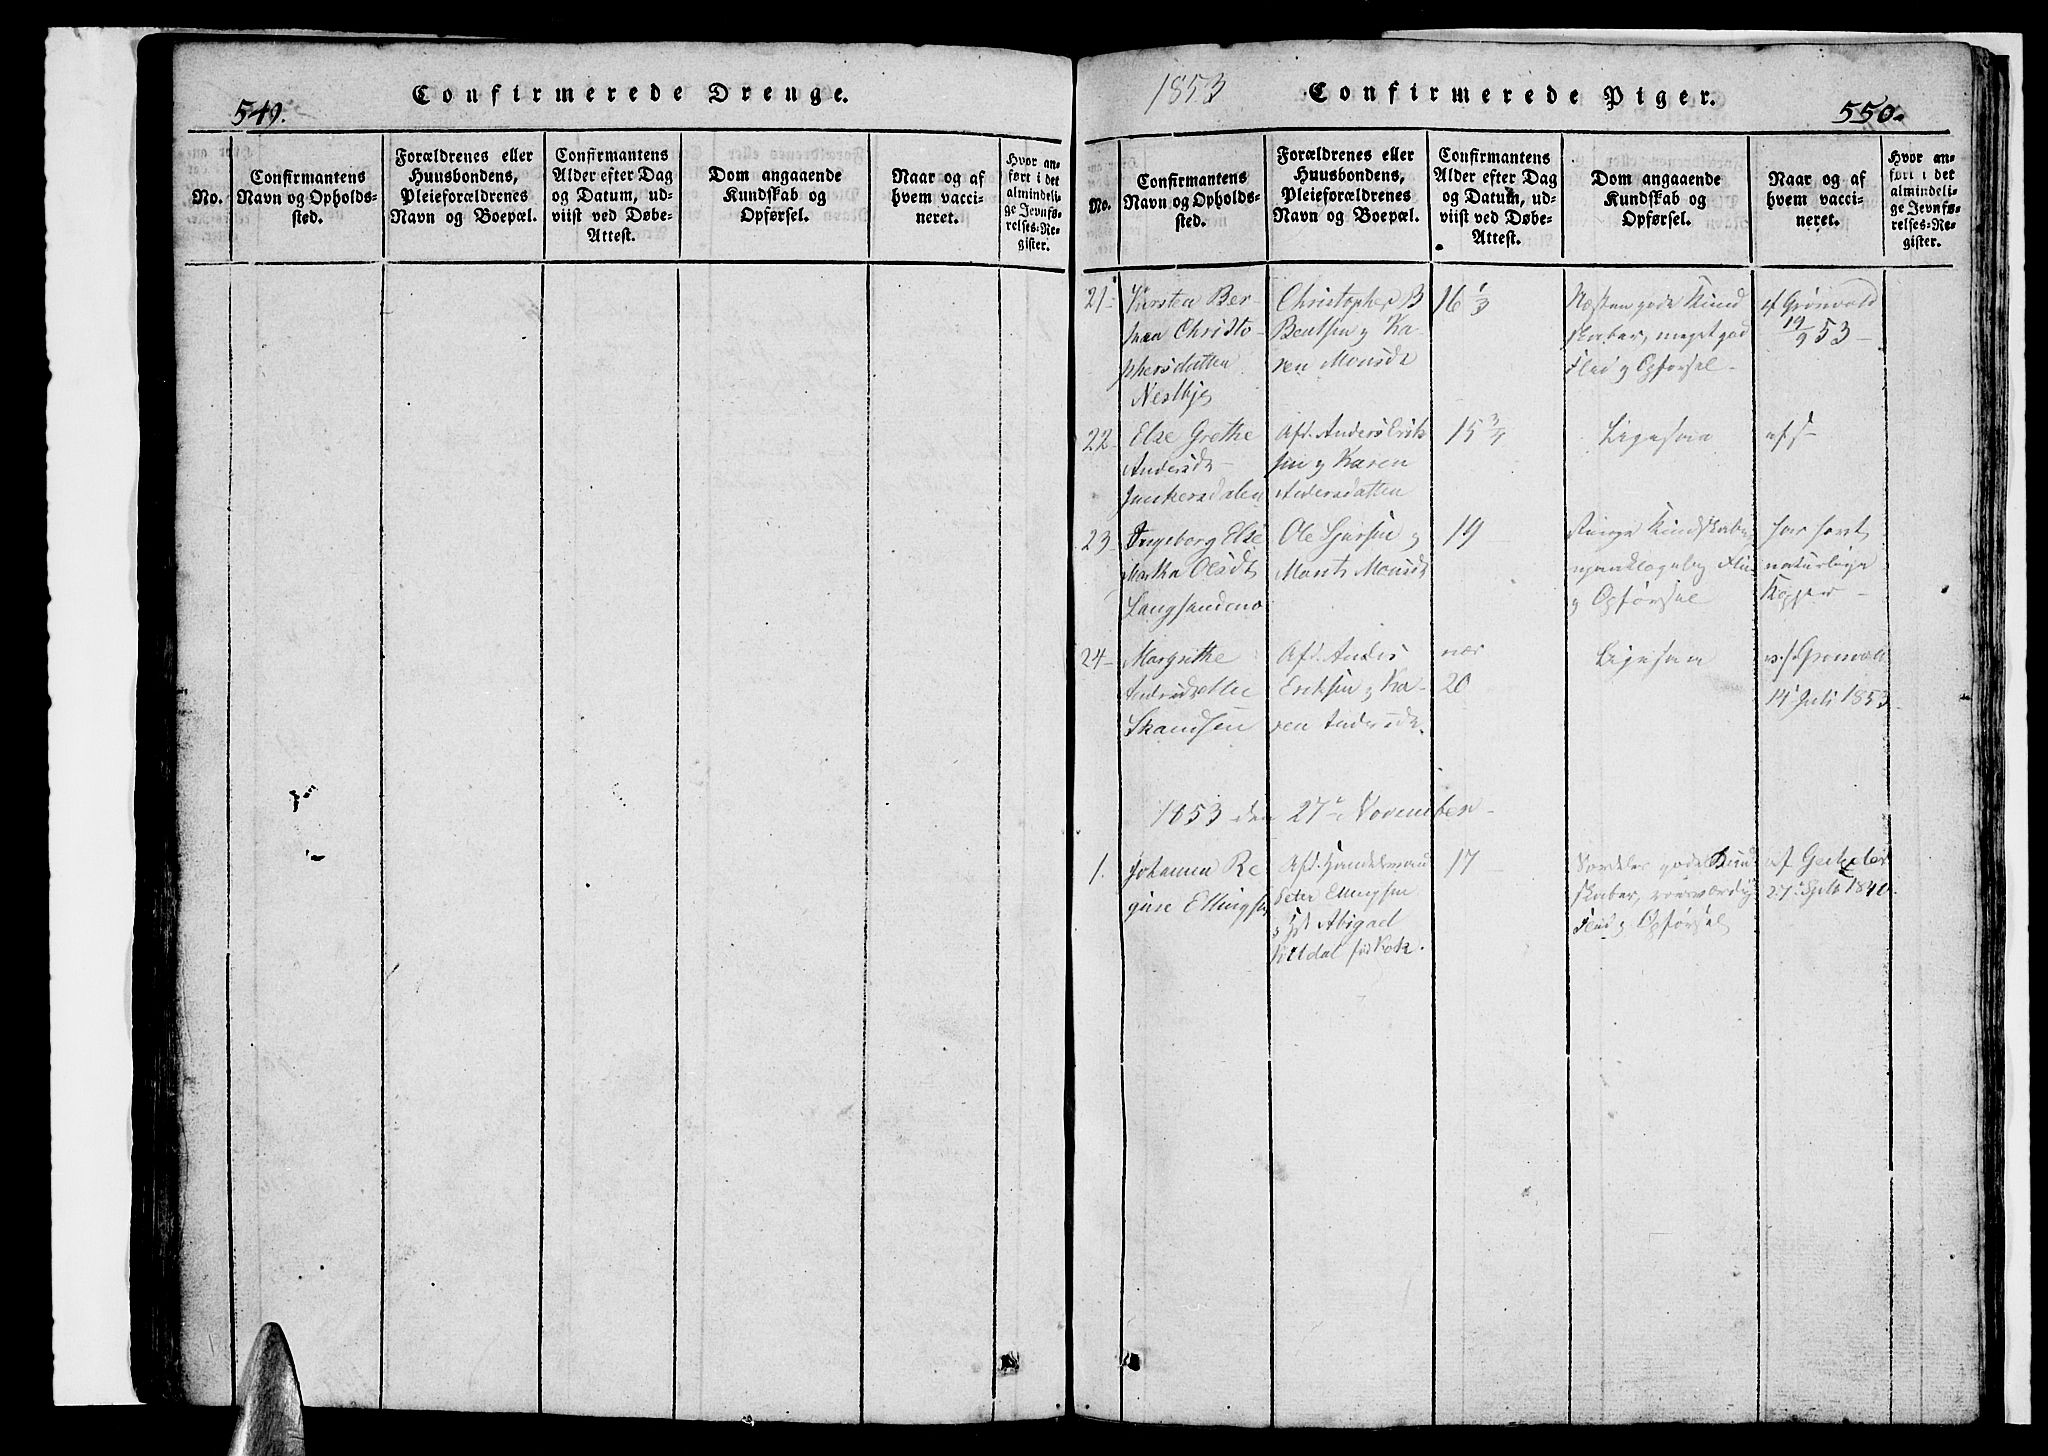 549.
Confirmerede Drenge.
No.
Confirmantens
Navn og Opholds-
sted.
Forældrenes eller
Huusbondens,
Pleieforældrenes
Navn og Boepæl.
Confirmantens
Alder efter Dag
og Datum, ud-
viist ved Døbe-
Attest.
Dom angaaende
Kundskab og
Opførsel.
Naar og af
hvem vacci-
neret.
Hvor an-
ført i det
almindeli-
ge Jevnfø-
relses-Re-
gister.
1853
Confirmerede Piger.
550.
No.
Confirmantens
Navn og Opholds-
sted.
Forældrenes eller
Huusbondens,
Pleieforældrenes
Navn og Boepæl.
Confirmantens
Alder efter Dag
og Datum, ud-
viist ved Døbe-
Attest.
Dom angaaende
Kundskab og
Opførsel.
Naar og af
hvem vacci-
neret.
Hvor an-
ført i det
almindeli-
ge Jevnfø-
relses-Re-
gister.
21-
Kirsten Ber-
Christo-
phersdatter
Nestbye
Christopher B
Bentsen og Ka-
ren Monsdt
16 1/3
Næsten gode Kund
skaber, meget god
Flid og Opførsel-
af Grönvold
19/9 53-
22-
Else Grethe
Andersdt-
Junkersdalen
Afd. Anders Erik
sen og Karen
Andersdatter
15 3/4
Ligesaa
23-
Ingeborg Else
Martha Olsdt
Langsandmo
Ole Sjursen og
Marit Monsdt
19
Ringe Kundskaber
upaaklagelig Flid
og Opførsel
har havt
naturlige
Kopper-
24-
Margrethe
Skansen
Afd. Anders
Eriksen og Ka-
ren Andersdt.
nær
20
Ligesaa
14 Juli 1853.
1853 den 27de November-
1.
Johanna Re
gine Ellingsen
Afd. Handelsmand
Peter Ellingsen
Abigael
17
Særdeles gode Kund
skaber, roesværdig
Flid og Opførsel
27de Sptb 1840.